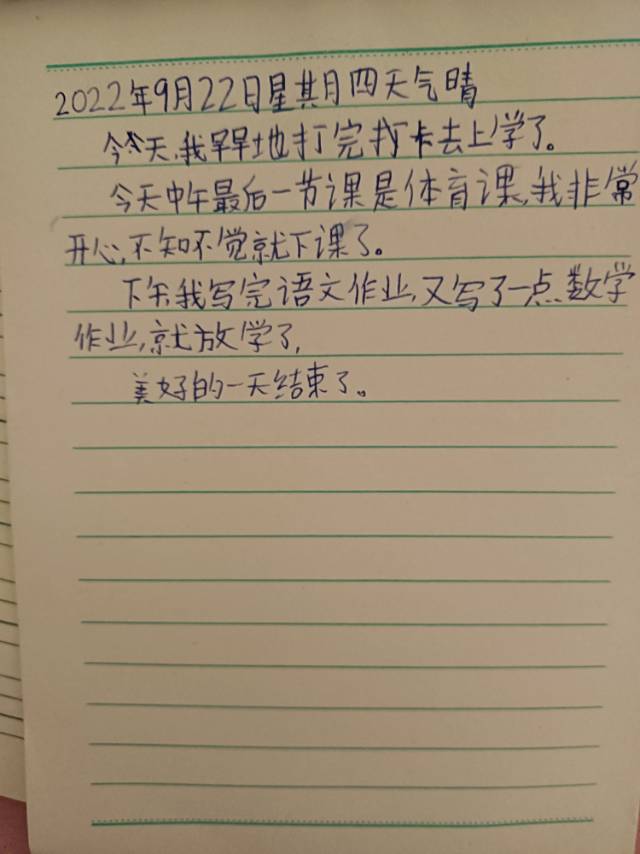 2022年9月22日星期四天气晴
今天,我早早地打完打卡去上学了。
今天中午最后一节课是体育课,我非常
开心,不知不觉就下课了。
下午我写完语文作业,又写了一点数学
作业,就放学了,
美好的一天结束了。